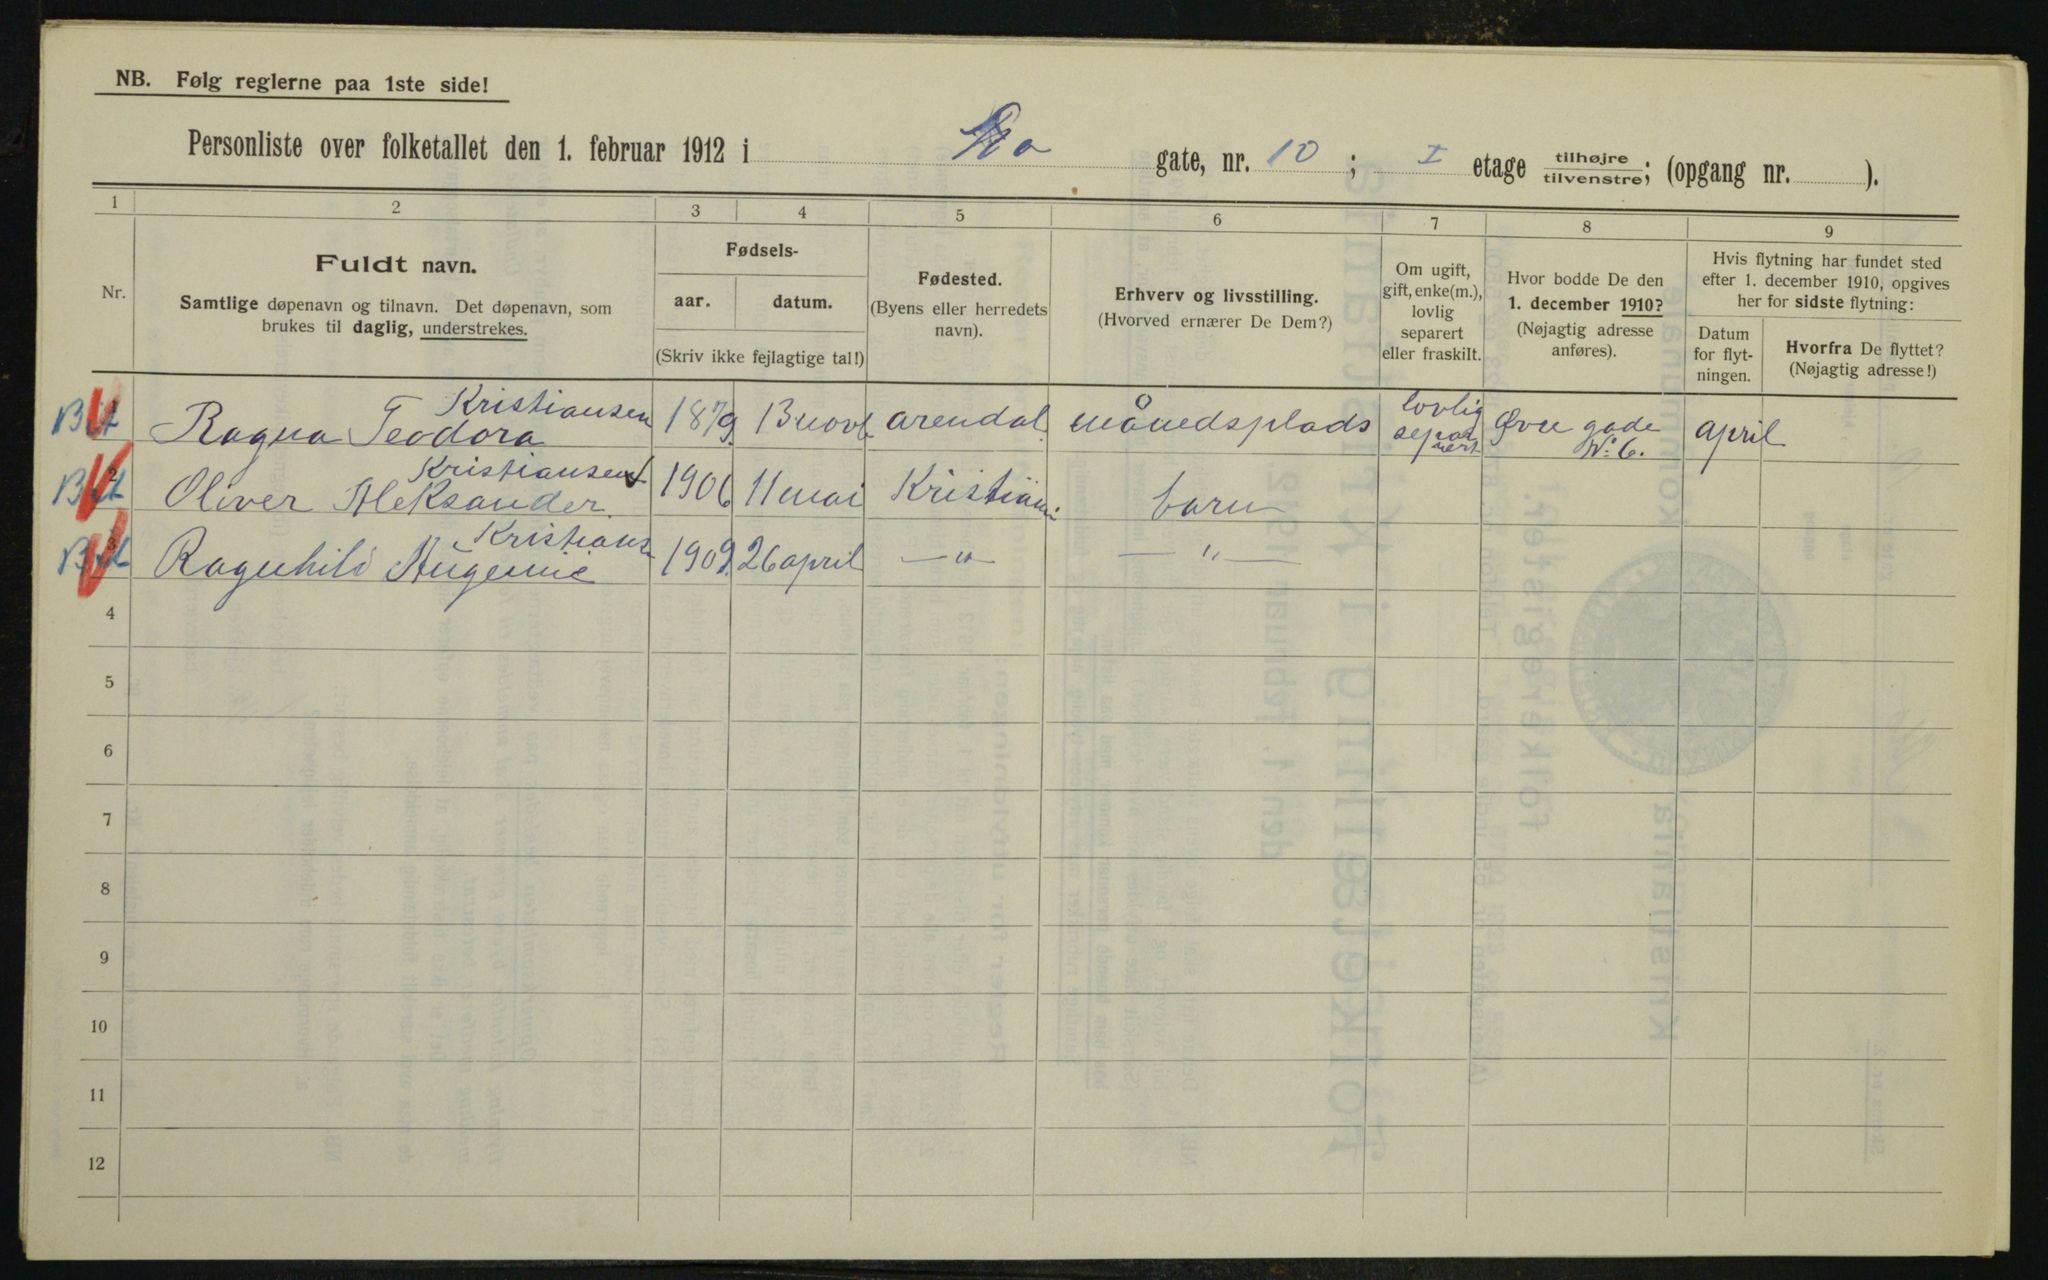 NB. Følg reglerne paa 1ste side!
Personliste over folketallet den 1. februar 1912 i gate, nr. 10; I etage tilhøjre tilvenstre; (opgang nr. ).
1 2 3 4 5 6 7 8 9
Nr.
Fuldt navn.
Samtlige døpenavn og tilnavn. Det døpenavn, som
brukes til daglig, understrekes.
Fødsels-
aar. datum.
(Skriv ikke fejlagtige tal!)
Fødested.
(Byens eller herredets
navn).
Erhverv og livsstilling.
(Hvorved ernærer De Dem?)
Om ugift,
gift, enke(m.),
lovlig
separert
eller fraskilt.
Hvor bodde De den
1. december 1910?
(Nøjagtig adresse
anføres).
Hvis flytning har fundet sted
efter 1. december 1910, opgives
her for sidste flytning:
Datum
for flyt-
ningen.
Hvorfra De flyttet?
(Nøjagtig adresse!)
Kristiansen
Ragna Teodora 1879 13 novb arendal månedsplads lovlig separert Øvre gade No: 6. april
2 Kristiansen
Oliver Aleksander. 1906 11 mai Kristiania barn
3 Kristians
Ragnhild 1909. 26 april —"— —"—
4
5
6
7
8
9
10
11
12